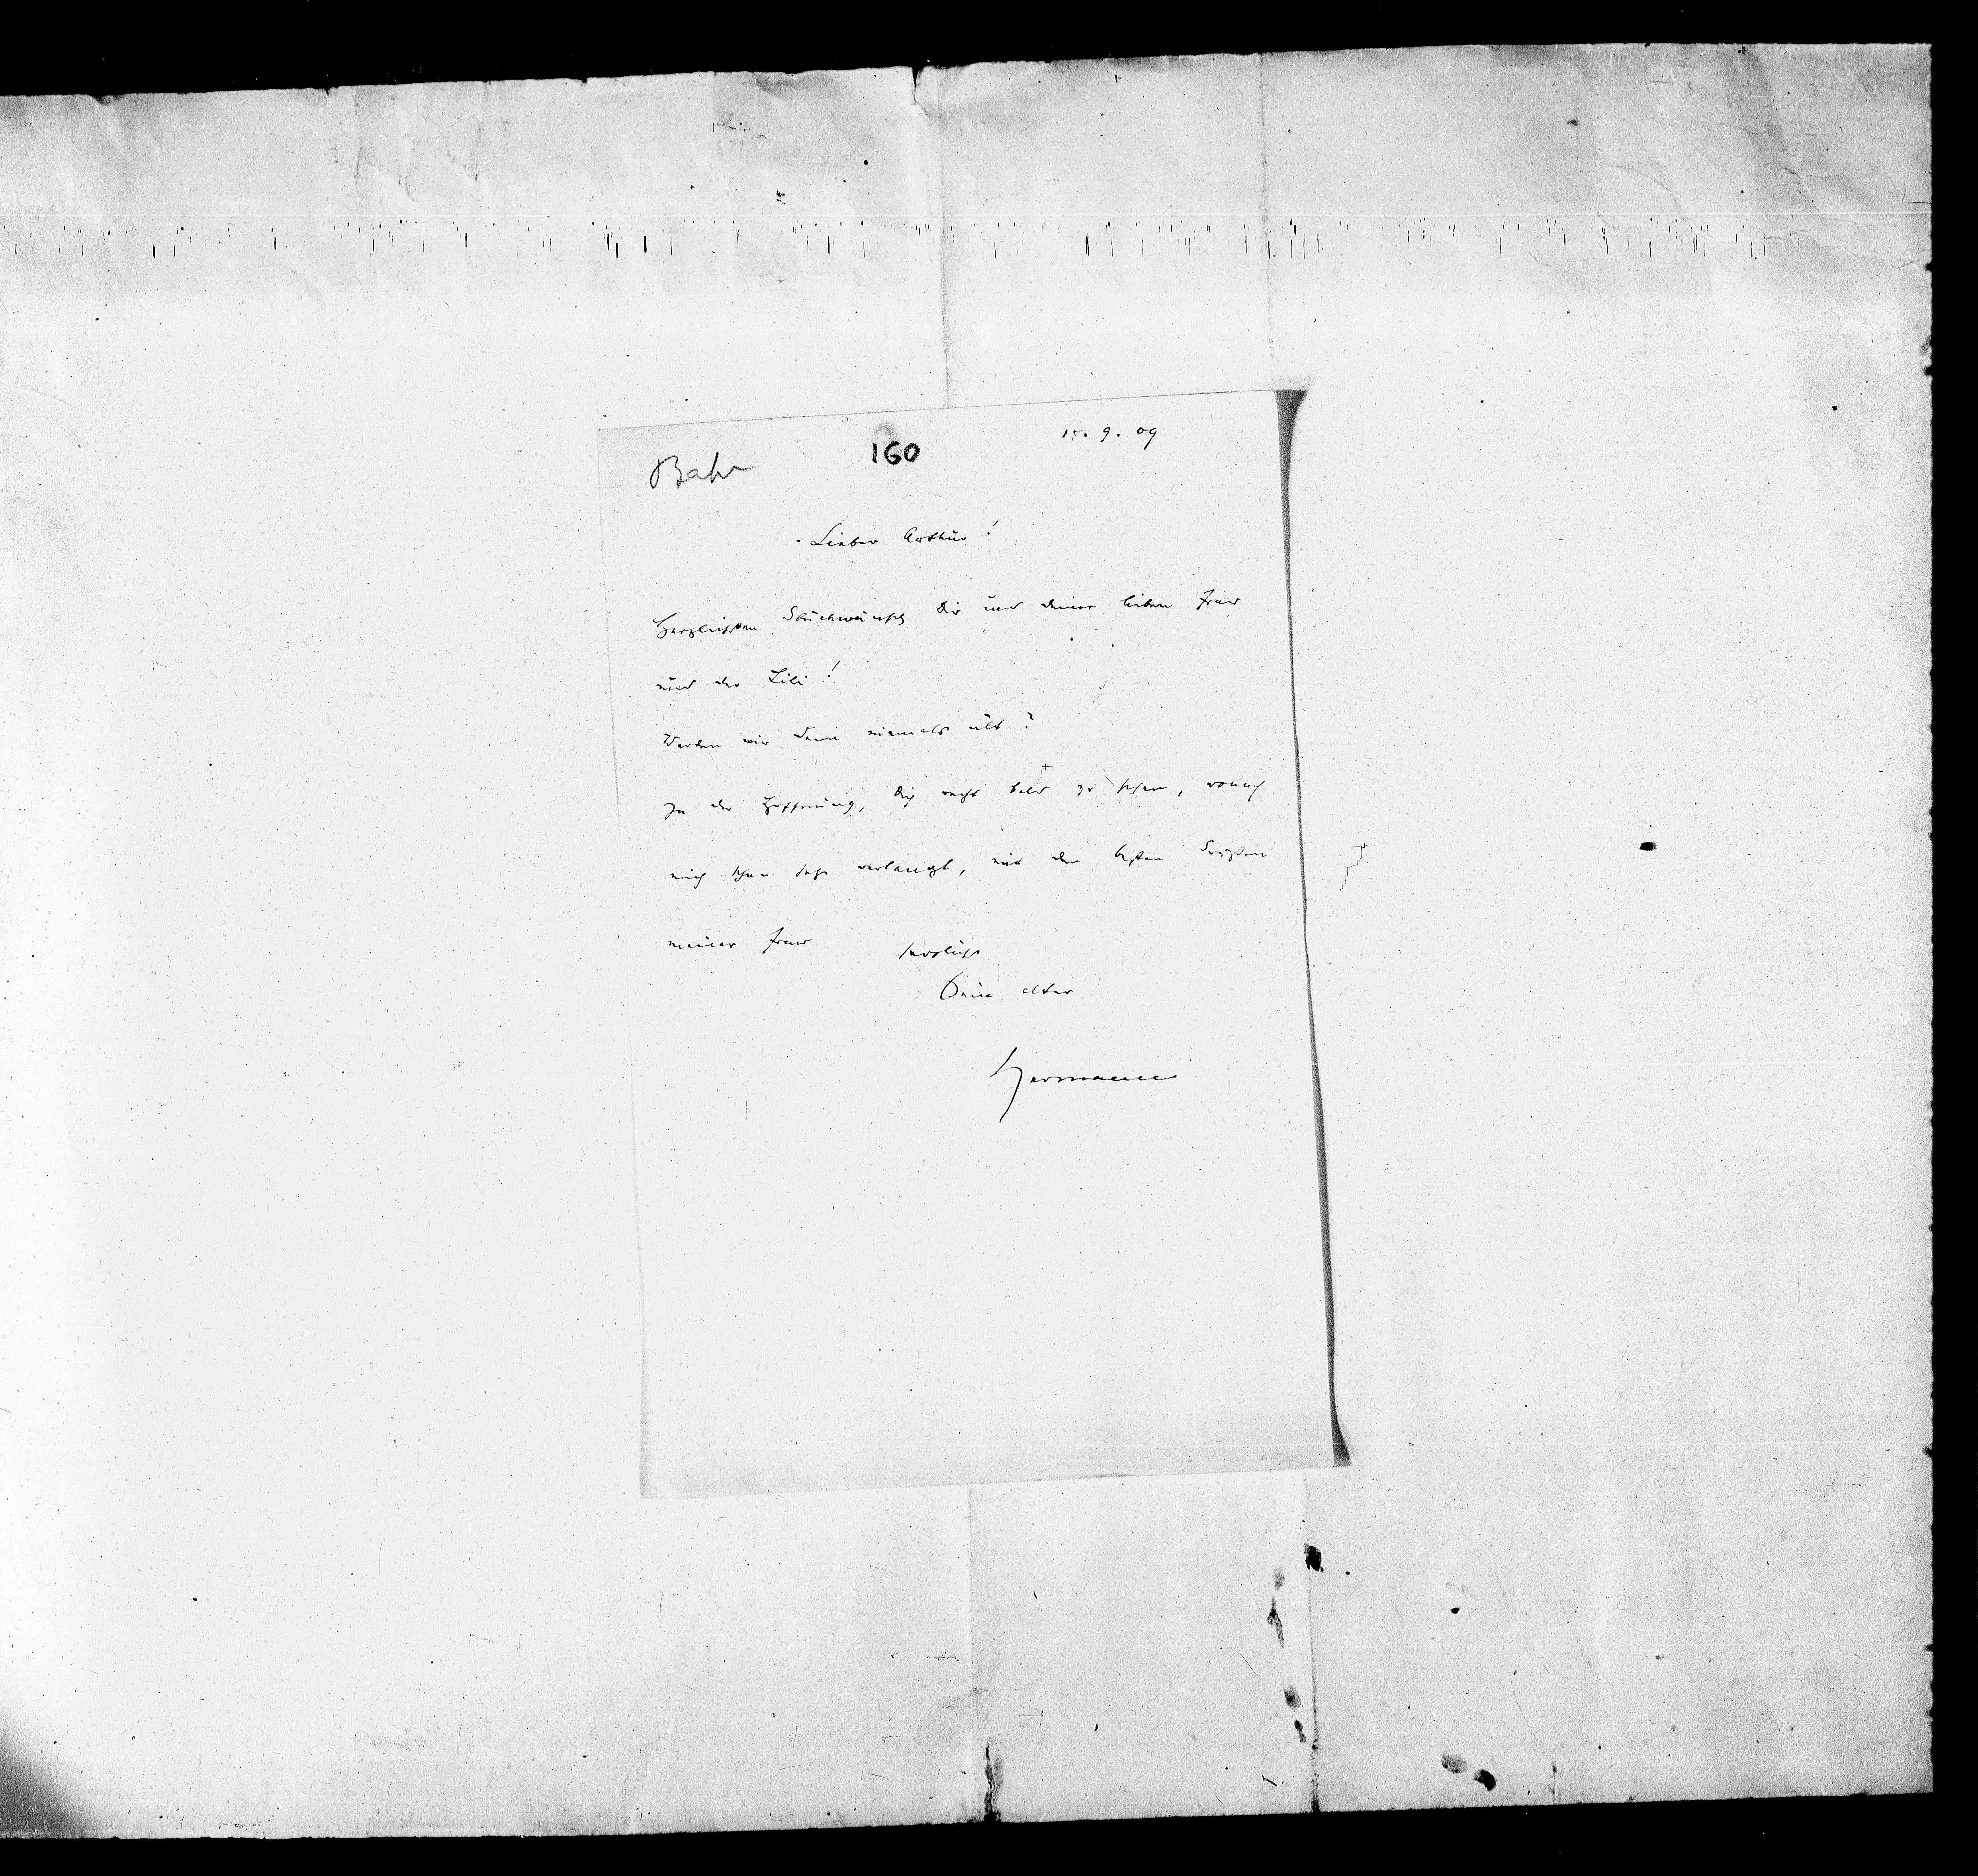 15. 9. 09
160
Bahr
Lieber Arthur!
Herzlichsten Glückwunsch Dir und deiner lieben Frau
und der Lili!
Werden wir denn niemals alt?
In der Hoffnung, Dich recht bald zu sehen, wonach
mich schon sehr verlangt, mit den besten Grüßen
meiner Frau herzlichst
Dein alter
Hermann